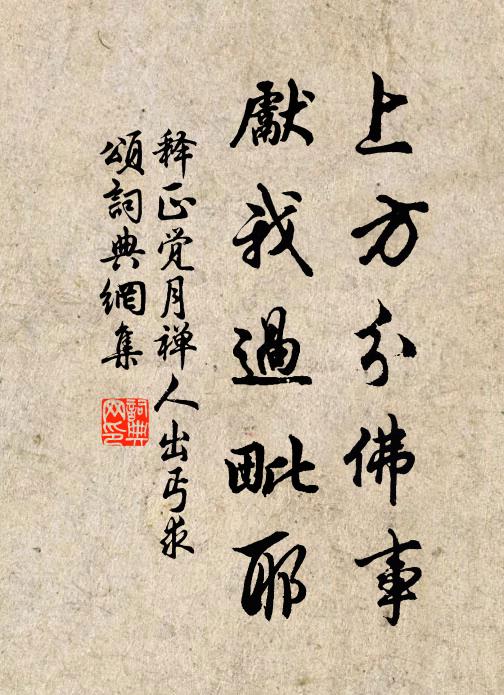 上方分佛事
獻我過毗耶
释正觉月禅人出丐求
頌詞典網集
詞典网印